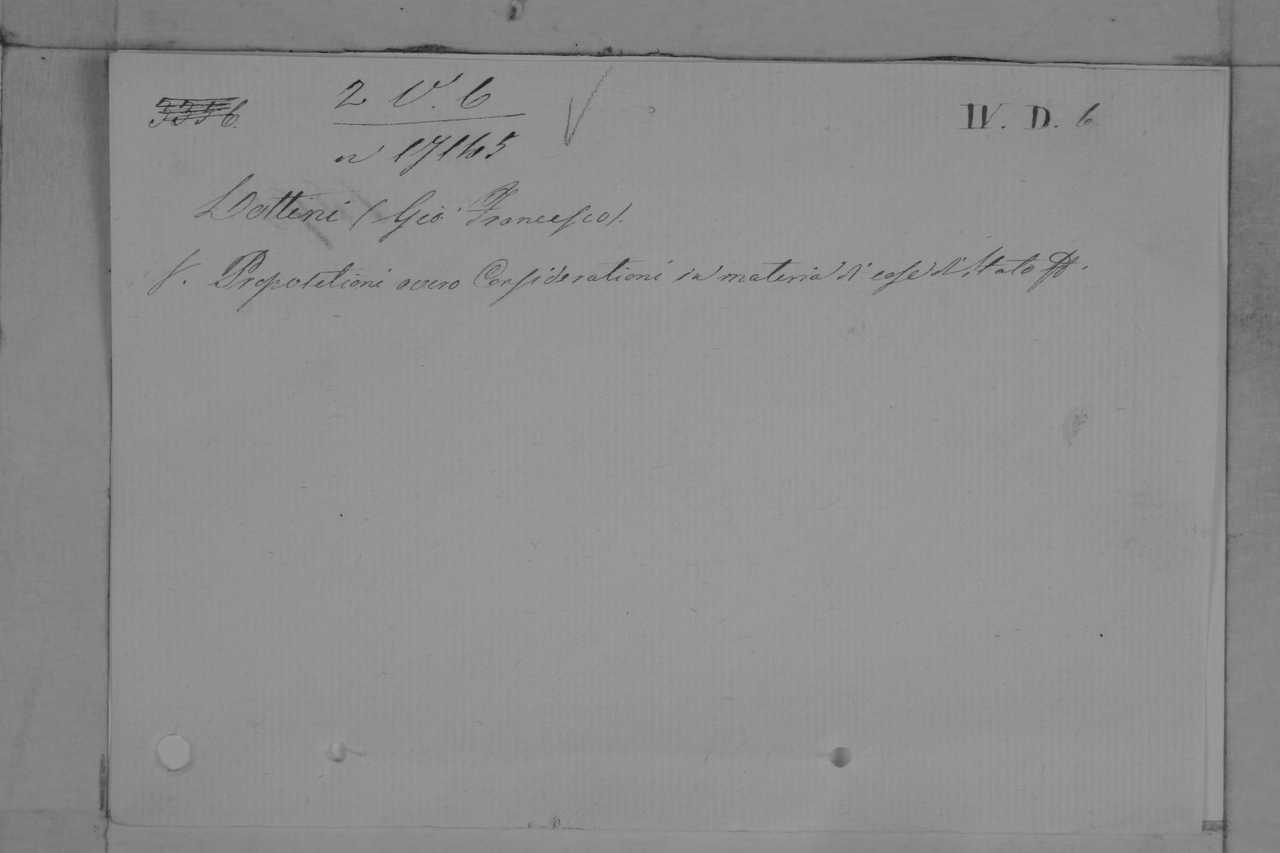 3356. 2 V. 6 IV. D. 6
n 17165
Lottini (Gio Francesco).
Propositioni overo Considerationi in materia di cose di Stato